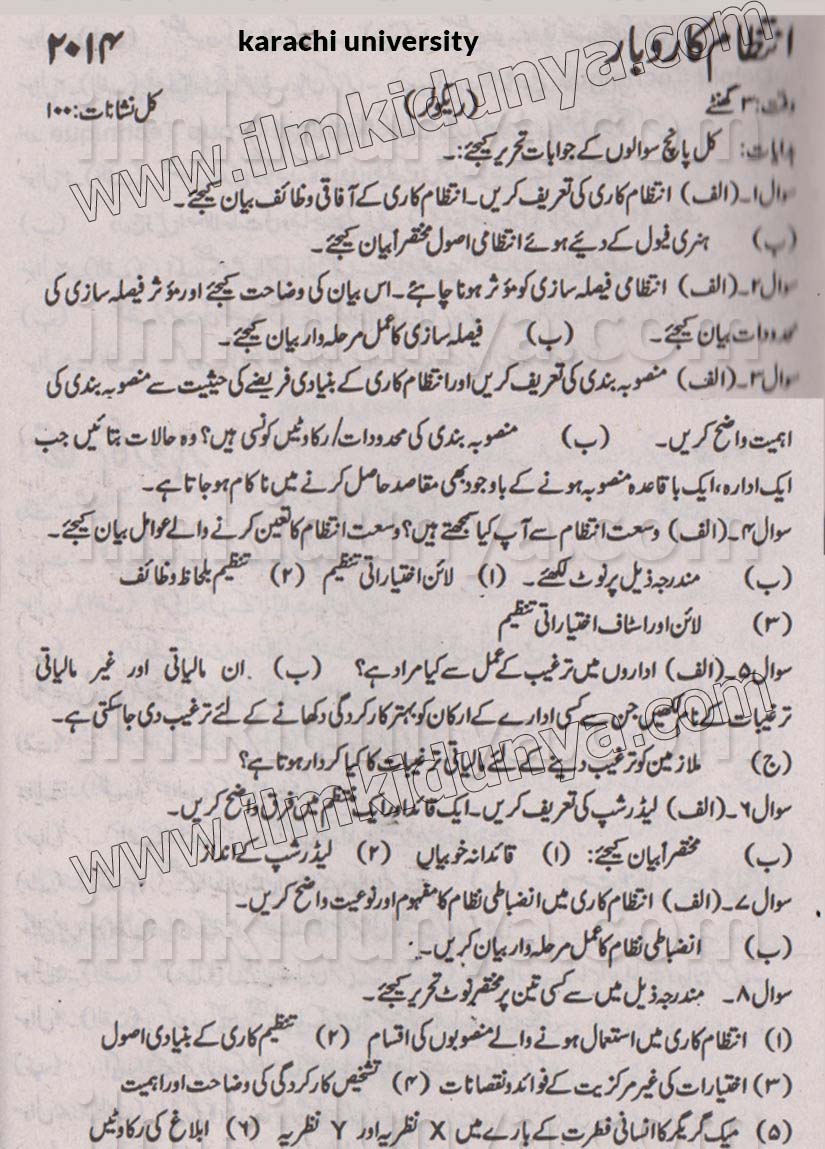 انتظام کاروبار karachi university ۲۰۱۴
وقت: ۳ گھنٹے (ریگولر) کل نشانات: ۱۰۰
ہدایات: کل پانچ سوالوں کے جوابات تحریر کیجئے:۔
سوال۱۔(الف) انتظام کاری کی تعریف کریں۔ انتظام کاری کے آفاقی وظائف بیان کیجئے۔
(ب) ہنری فیول کے دیئے ہوئے انتظامی اصول مختصراً بیان کیجئے۔
سوال۲۔(الف) انتظامی فیصلہ سازی کو مؤثر ہونا چاہئے۔ اس بیان کی وضاحت کیجئے اور مؤثر فیصلہ سازی کی
محدودات بیان کیجئے۔ (ب) فیصلہ سازی کا عمل مرحلہ وار بیان کیجئے۔
سوال۳۔(الف) منصوبہ بندی کی تعریف کریں اور انتظام کاری کے بنیادی فریضے کی حیثیت سے منصوبہ بندی کی
اہمیت واضح کریں۔ (ب) منصوبہ بندی کی محدودات/رکاوٹیں کونسی ہیں؟ وہ حالات بتائیں جب
ایک ادارہ، ایک باقاعدہ منصوبہ ہونے کے باوجود بھی مقاصد حاصل کرنے میں ناکام ہو جاتا ہے۔
سوال۴۔(الف) وسعت انتظام سے آپ کیا سمجھتے ہیں؟ وسعت انتظام کا تعین کرنے والے عوامل بیان کیجئے۔
(ب) مندرجہ ذیل پر نوٹ لکھئے۔ (۱) لائن اختیاراتی تنظیم (۲) تنظیم بلحاظ وظائف
(۳) لائن اور اسٹاف اختیاراتی تنظیم
سوال۵۔(الف) اداروں میں ترغیب کے عمل سے کیا مراد ہے؟ (ب) ان مالیاتی اور غیر مالیاتی
ترغیبات کے نام لکھیں جن سے کسی ادارے کے ارکان کو بہتر کارکردگی دکھانے کے لئے ترغیب دی جاسکتی ہے۔
(ج) ملازمین کو ترغیب دینے کے لئے مالیاتی ترغیبات کا کیا کردار ہوتا ہے؟
سوال۶۔(الف) لیڈرشپ کی تعریف کریں۔ ایک قائد اور ایک منتظم میں فرق واضح کریں۔
(ب) مختصراً بیان کیجئے: (۱) قائدانہ خوبیاں (۲) لیڈرشپ کے انداز
سوال۷۔(الف) انتظام کاری میں انضباطی نظام کا مفہوم اور نوعیت واضح کریں۔
(ب) انضباطی نظام کا عمل مرحلہ وار بیان کریں۔
سوال۸۔ مندرجہ ذیل میں سے کسی تین پر مختصر نوٹ تحریر کیجئے۔
(۱) انتظام کاری میں استعمال ہونے والے منصوبوں کی اقسام (۲) تنظیم کاری کے بنیادی اصول
(۳) اختیارات کی غیر مرکزیت کے فوائد و نقصانات (۴) تشخیص کارکردگی کی وضاحت اور اہمیت
(۵) میک گریگر کا انسانی فطرت کے بارے میں X نظریہ اور Y نظریہ (۶) ابلاغ کی رکاوٹیں
www.ilmkidunya.com
www.ilmkidunya.com
ilmkidunya.com
ilmkidunya.com
ilmkidunya.com
ilmkidunya.com
ilmkidunya.com